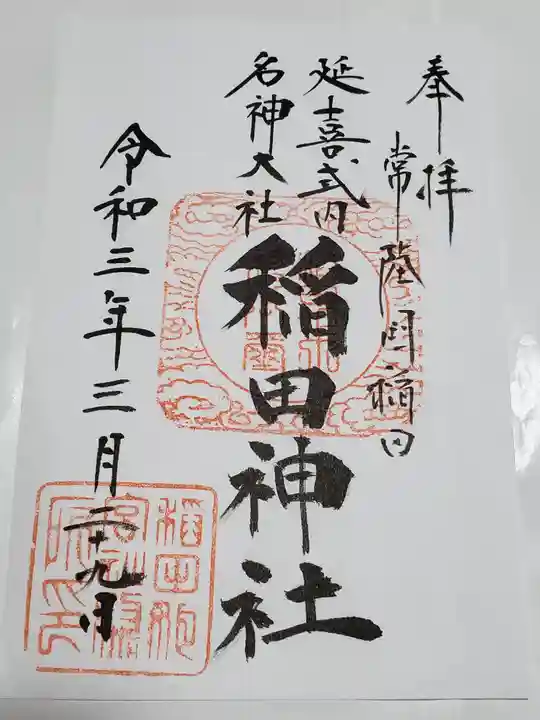 奉拝
常陸國稲田
延喜式内
名神大社
稲田神社
令和三年三月二十九日